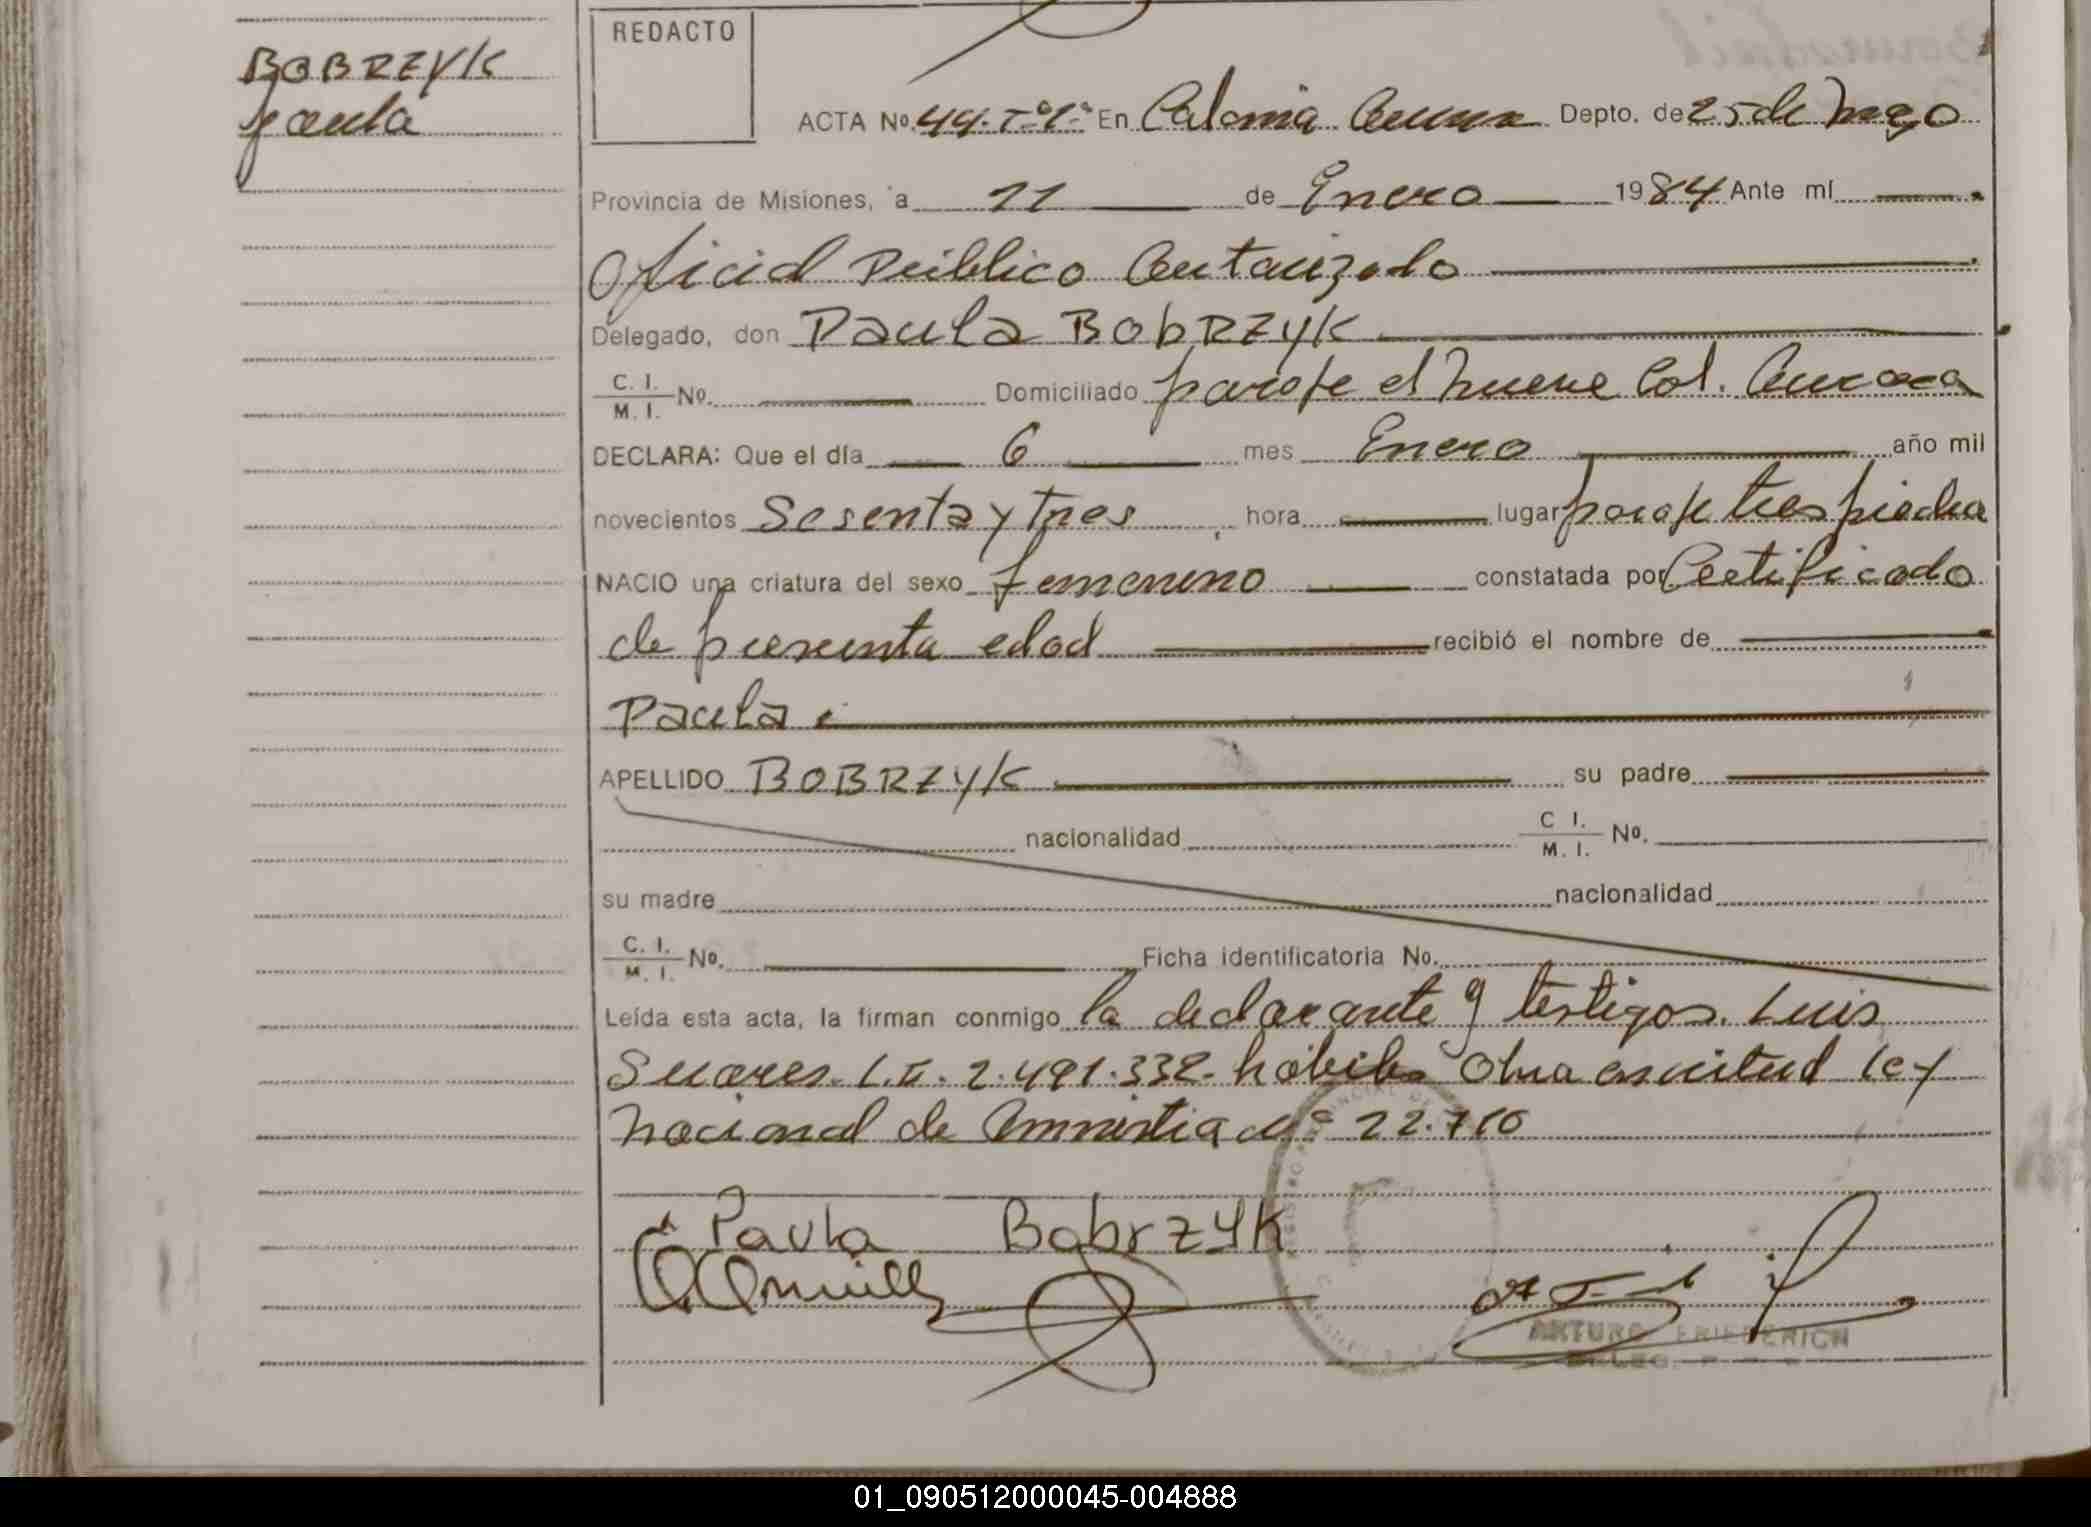 REDACTO
BOBRZYK
Paula
ACTA Nº 44. Tº 1º En Colonia Aurora Depto. de 25 de Mayo
Provincia de Misiones, a 11 de Enero 1984 Ante mí
Oficial Público Autorizado
Delegado, don Paula BObRZYK
C. I. M. I. Nº. Domiciliado paraje el nueve Col. Aurora
DECLARA: Que el día 6 mes Enero año mil
novecientos Sesenta y Tres, hora lugar paraje tres piedra
NACIO una criatura del sexo femenino constatada por Certificado
de presunta edad recibió el nombre de
Paula
APELLIDO BOBRZYK su padre
nacionalidad C I. M. I. Nº.
su madre nacionalidad
C. I. M. I. Nº. Ficha identificatoria No.
Leída esta acta, la firman conmigo la declarante y testigos. Luis
Suares L.E. 2.491.332. habiles Obra en virtud ley
Nacional de Amnistia Nº 22.710
Paula Bobrzyk
ARTURO FRIEDERICH
01_090512000045-004888